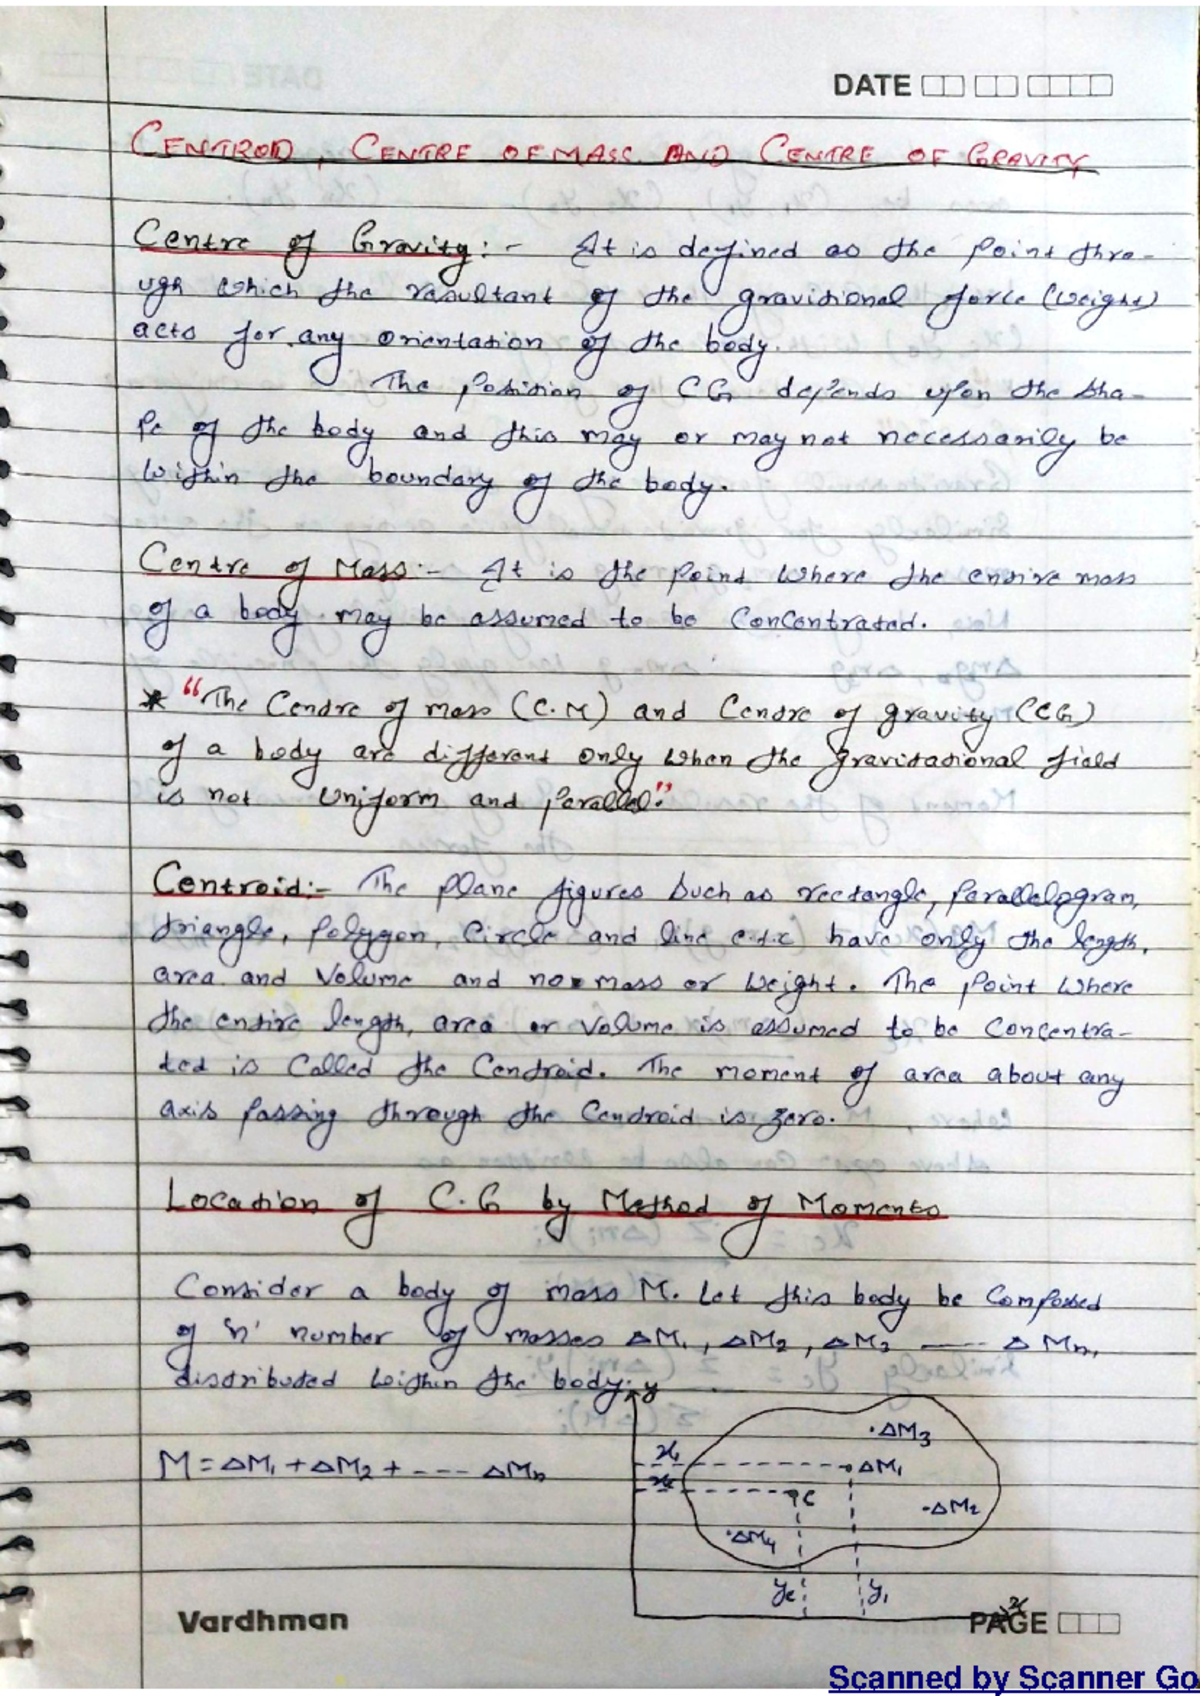 DATE
CENTROID, CENTRE OF MASS AND CENTRE OF GRAVITY
Centre of Gravity:- It is defined as the point thro-
ugh which the resultant of the gravitional force (weight)
acts for any orientation of the body.
The position of CG depends upon the sha-
pe of the body and this may or may not necessarily be
within the boundary of the body.
Centre of Mass:- It is the point where the entire mass
of a body may be assumed to be concentrated.
* "The Centre of mass (C.M) and Centre of gravity (CG)
of a body are different only when the gravitational field
is not uniform and parallel."
Centroid:- The plane figures such as rectangle, parallelogram,
triangle, polygon, circle and line etc have only the length,
area and volume and no mass or weight. The point where
the entire length, area or volume is assumed to be concentra-
ted is called the Centroid. The moment of area about any
axis passing through the Centroid is zero.
Location of C.G by Method of Moments
Consider a body of mass M. Let this body be composed
of 'n' number of masses ΔM₁, ΔM₂, ΔM₃ ---- ΔMn,
distributed within the body.
y
ΔM₃
M = ΔM₁ + ΔM₂ + ---- ΔMn
x₁
ΔM₁
xc
c
ΔM₂
ΔM₄
yc
y₁
x
Vardhman
PAGE
Scanned by Scanner Go